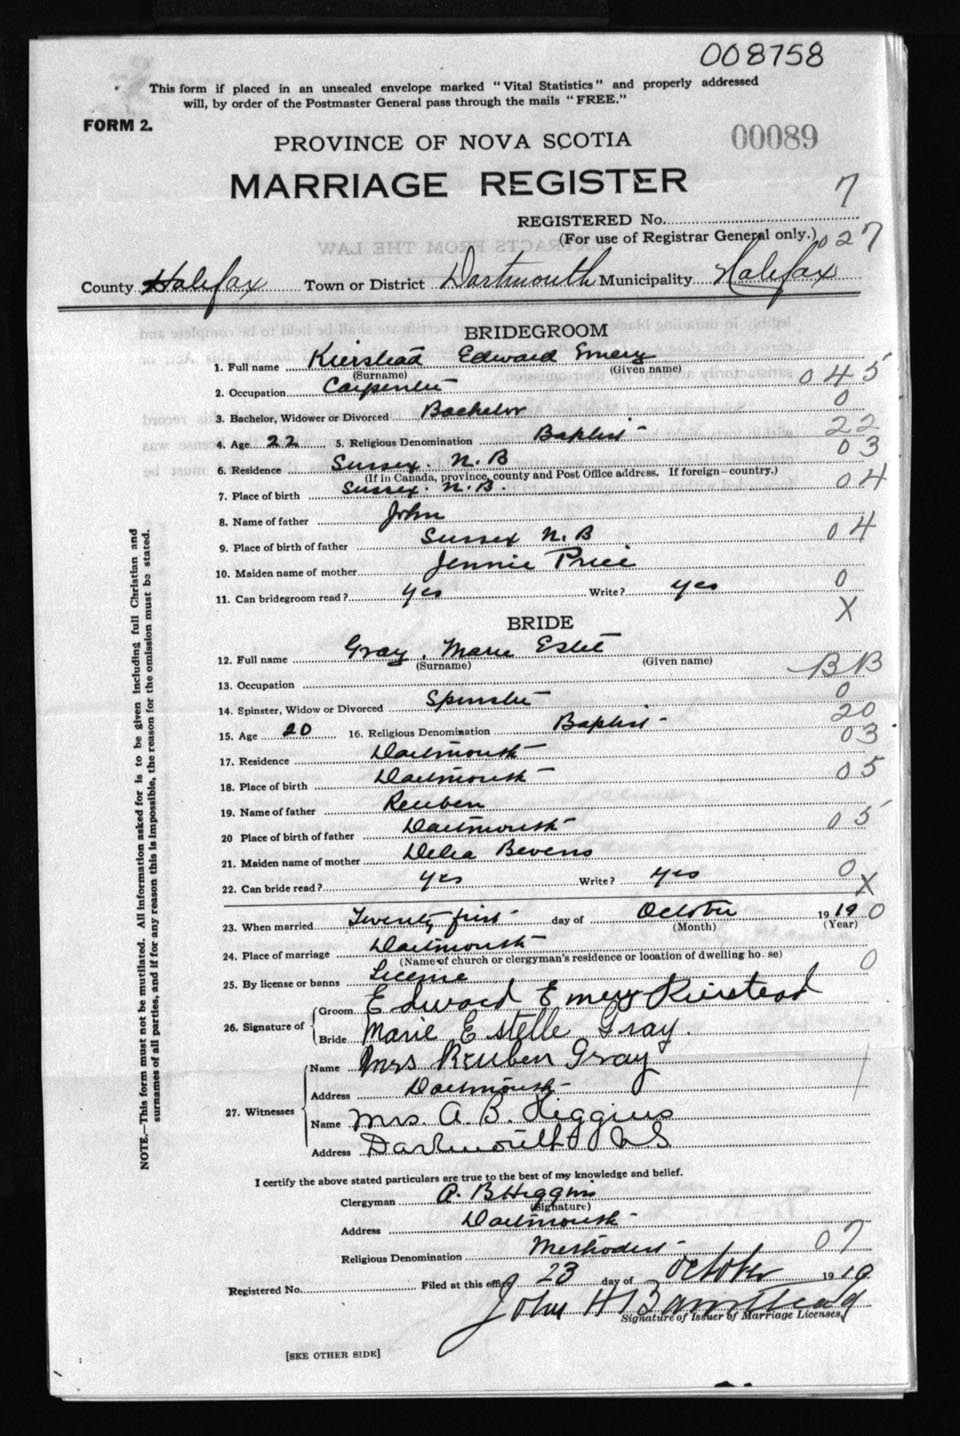 008758
This form if placed in an unsealed envelope marked "Vital Statistics" and properly addressed
will, by order of the Postmaster General pass through the mails "FREE."
FORM 2.
PROVINCE OF NOVA SCOTIA 00089
MARRIAGE REGISTER
7
REGISTERED No.
(For use of Registrar General only.) 027
County Halifax Town or District Dartmouth Municipality Halifax
BRIDEGROOM
1. Full name Kierstead Edward Emery
(Surname) (Given name)
2. Occupation Carpenter 045
3. Bachelor, Widower or Divorced Bachelor 0
4. Age 22 5. Religious Denomination Baptist 22
6. Residence Sussex. N.B 03
(If in Canada, province, county and Post Office address. If foreign - country.)
7. Place of birth Sussex. N.B. 04
8. Name of father John
9. Place of birth of father Sussex N.B 04
10. Maiden name of mother Jennie Price
11. Can bridegroom read? yes Write? yes 0
X
BRIDE
12. Full name Gray, Marie Estel
(Surname) (Given name)
13. Occupation BB
14. Spinster, Widow or Divorced Spinster 0
15. Age 20 16. Religious Denomination Baptist 20
17. Residence Dartmouth 03
18. Place of birth Dartmouth 05
19. Name of father Reuben
20 Place of birth of father Dartmouth 05
21. Maiden name of mother Delia Bevens
22. Can bride read? yes Write? yes 0
X
23. When married Twenty first day of October 1919 0
(Month) (Year)
24. Place of marriage Dartmouth
(Name of church or clergyman's residence or location of dwelling house)
25. By license or banns License 0
26. Signature of Groom Edward Emery Kierstead
Bride Marie Estelle Gray.
27. Witnesses Name Mrs Reuben Gray
Address Dartmouth
Name Mrs. A. B. Higgins
Address Dartmouth N S
I certify the above stated particulars are true to the best of my knowledge and belief.
Clergyman A. B Higgins
(Signature)
Address Dartmouth
Religious Denomination Methodist 07
Registered No. Filed at this office 23 day of October 1919
John H
Signature of Issuer of Marriage Licenses
[SEE OTHER SIDE]
NOTE.—This form must not be mutilated. All information asked for is to be given including full Christian and
surnames of all parties, and if for any reason this is impossible, the reason for the omission must be stated.